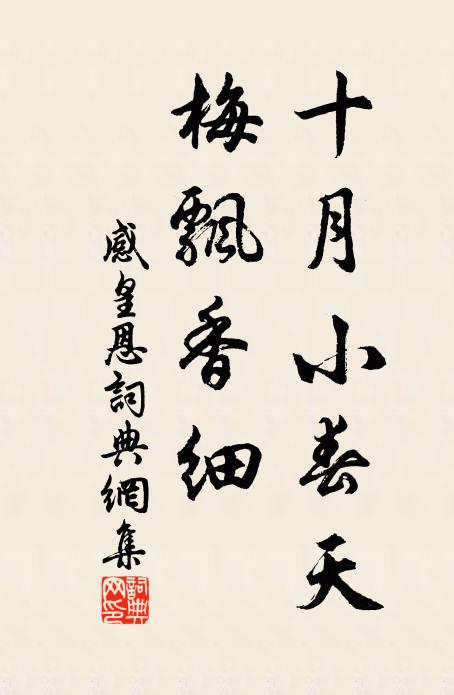 十月小春天
梅飄香細
感皇恩詞典網集
詞典网印